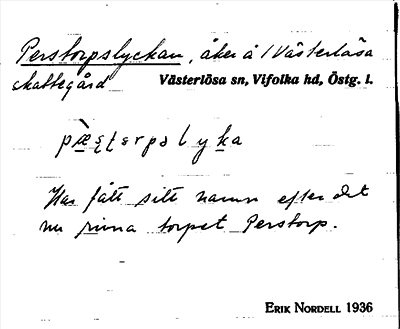 Perstorpslyckan, åker å 1 Västerlösa
skattegård Västerlösa sn, Vifolka hd, Östg. l.
Has fått sitt namn efter det
nu rivna torpet Perstorp.
ERIK NORDELL 1936